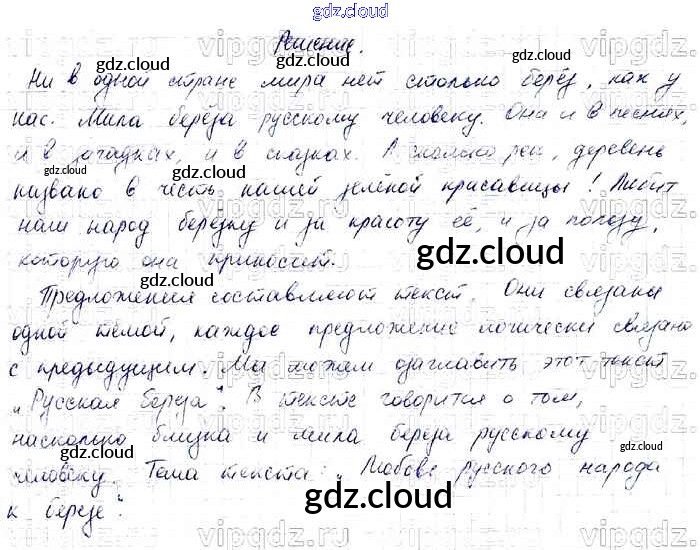 gdz.cloud
Решение.
Ни в одной стране мира нет столько берёз, как у
нас. Мила береза русскому человеку. Она и в песнях,
и в загадках, и в сказках. А сколько рек, деревень
названо в честь нашей зелёной красавицы! Любит
наш народ березку и за красоту её, и за пользу,
которую она приносит.
Предложения составляют текст. Они связаны
одной темой, каждое предложение логически связано
с предыдущим. Мы можем озаглавить этот текст
„Русская береза". В тексте говорится о том,
насколько близка и мила береза русскому
человеку. Тема текста: „Любовь русского народа
к березе".